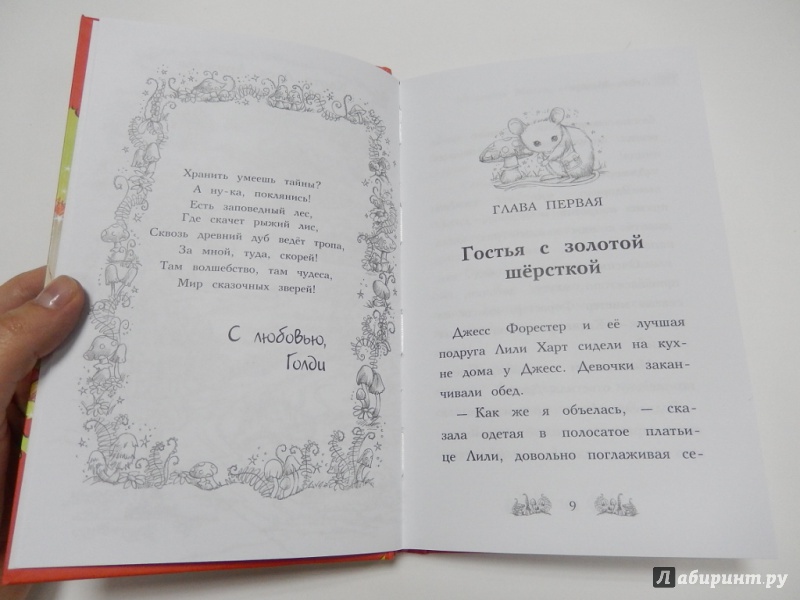 Хранить умеешь тайны?
А ну-ка, поклянись!
Есть заповедный лес,
Где скачет рыжий лис,
Сквозь древний дуб ведёт тропа,
За мной, туда, скорей!
Там волшебство, там чудеса,
Мир сказочных зверей!
С любовью,
Голди
ГЛАВА ПЕРВАЯ
Гостья с золотой
шёрсткой
Джесс Форестер и её лучшая
подруга Лили Харт сидели на кух-
не дома у Джесс. Девочки закан-
чивали обед.
— Как же я объелась, — ска-
зала одетая в полосатое платьи-
це Лили, довольно поглаживая се-
9
Лабиринт.ру